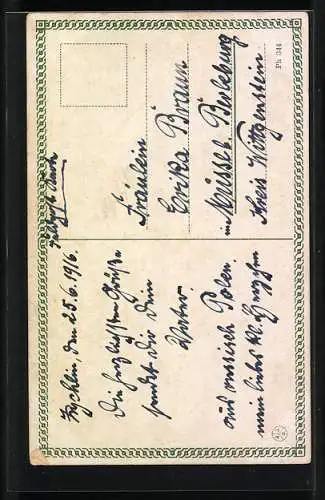 Zychlin, den 25.6.1916.
Die herzlichsten Grüße
sendet dir dein
Vater.
aus russisch Polen.
mein liebes kl. Herzchen
Fräulein
Erika Braun
in Müsse b. Berleburg
Kreis Wittgenstein
Ph 344